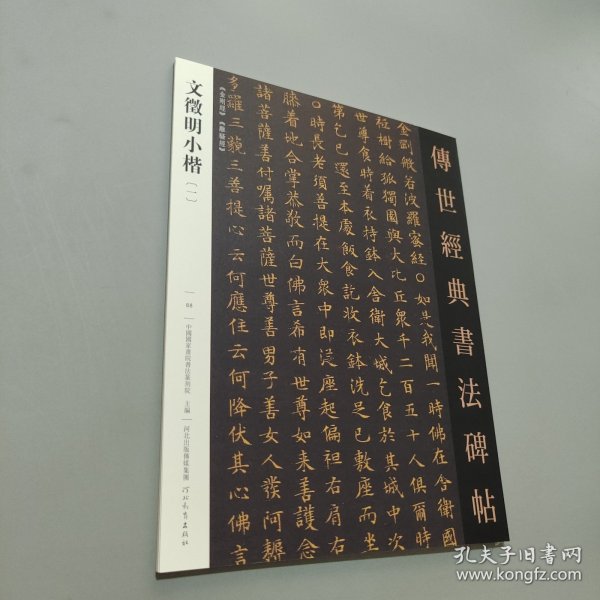 傳世經典書法碑帖
金剛般若波羅蜜經〇如是我聞一時佛在舍衛國
祇樹給孤獨園與大比丘眾千二百五十人俱爾時
世尊食時着衣持鉢入舍衛大城乞食於其城中次
第乞已還至本處飯食訖收衣鉢洗足已敷座而坐
〇時長老須菩提在大眾中即從座起偏袒右肩右
膝着地合掌恭敬而白佛言希有世尊如來善護念
諸菩薩善付嘱諸菩薩世尊善男子善女人發阿耨
多羅三藐三菩提心云何應住云何降伏其心佛言
《金剛經》《離騷經》
文徵明小楷〔一〕
68
中國國家畫院書法篆刻院 主編
河北出版傳媒集團
河北教育出版社
孔夫子旧书网
www.kongfz.com